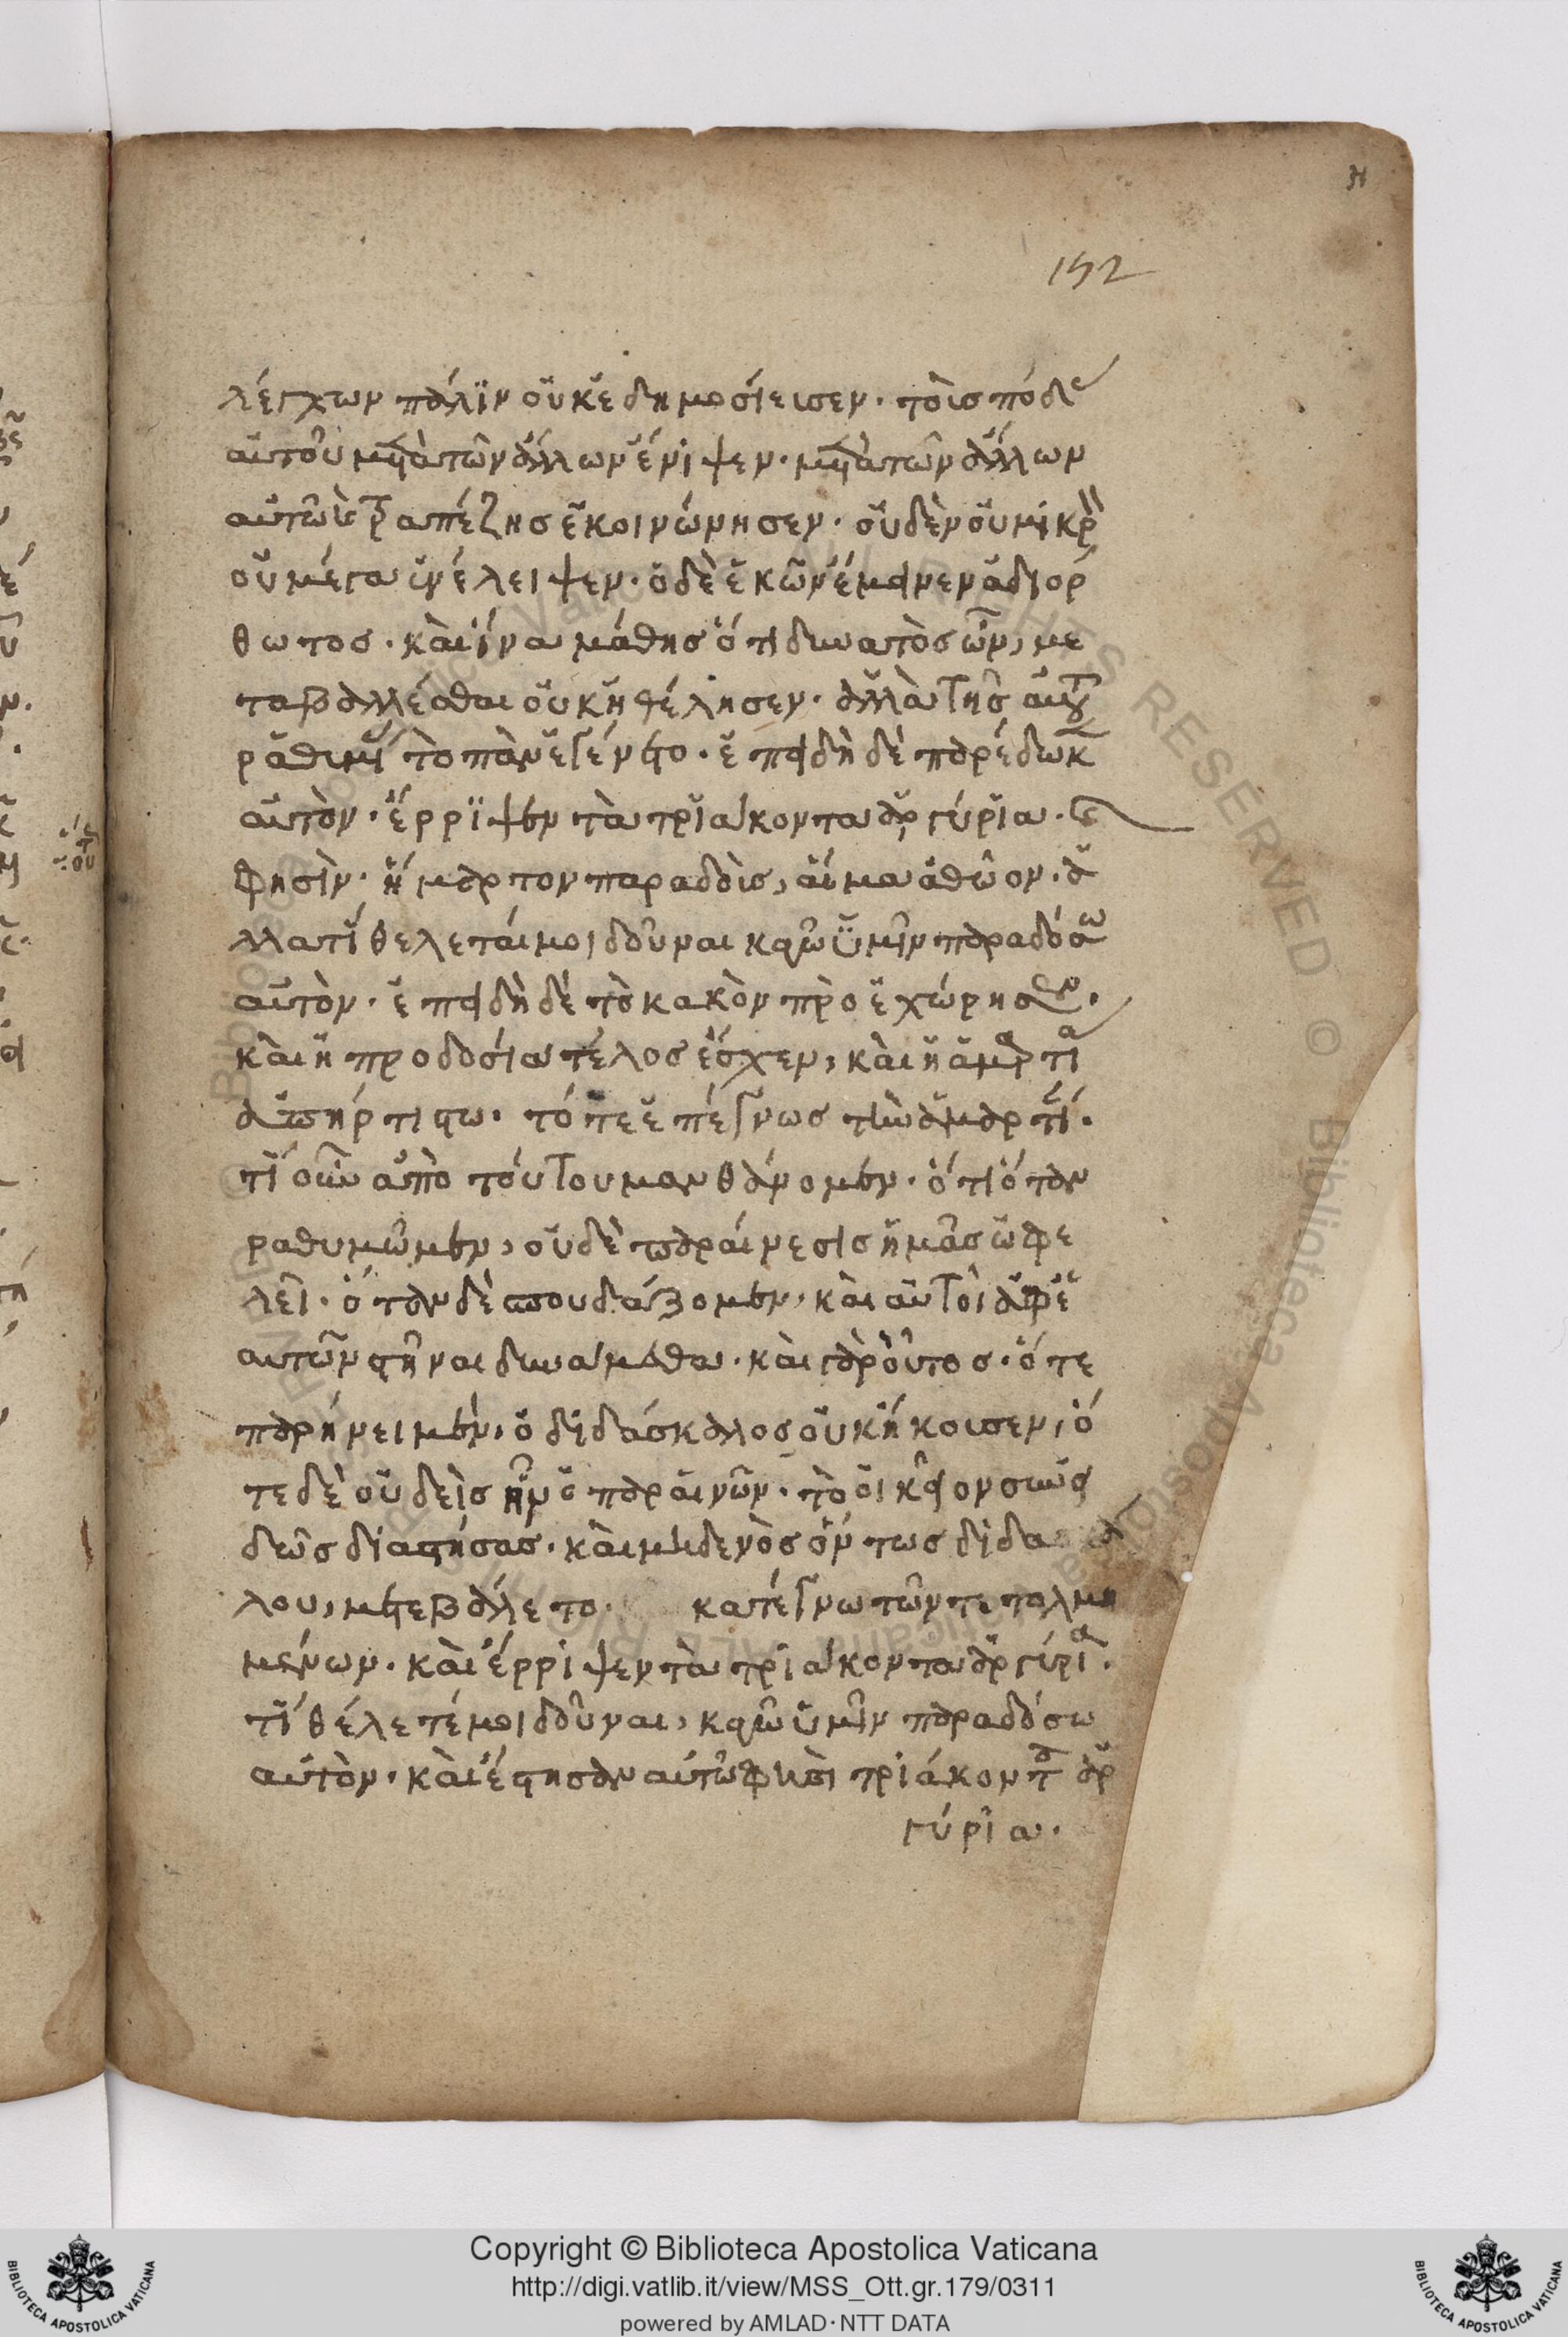 152
λέγχων πάλιν οὐκ ἐδημοσίευσεν· τοὺς πόδ
αὐτοῦ μετὰ τῶν ἄλλων ἔνιψεν· μετὰ τῶν ἄλλων
αὐτῶ τραπέζης ἐκοινώνησεν· οὐδὲν οὐ μικρὸν
οὐ μέγα ἐνέλειψεν· ὁ δὲ ἑκὼν ἔμεινεν ἀδιόρ
θωτος· καὶ ἵνα μάθης ὅτι δυνατὸς ὢν, με
ταβαλλέσθαι οὐκ ἠθέλησεν· ἀλλὰ τῆς αὐτοῦ
ραθυμίας τὸ πὰν ἐγένετο· ἐπειδὴ δὲ παρέδωκεν
αὐτὸν· ἔρριψεν τὰ τριάκοντα ἀργύρια· καὶ
φησὶν· ἥμαρτον παραδοὺς, αἷμα ἀθῶον· ἀ
λλὰ τί θέλεταί μοι δοῦναι καγὼ ὑμῖν παραδόσω
αὐτὸν· ἐπειδὴ δὲ τὸ κακὸν προεχώρησεν·
καὶ ἡ προδοσία τέλος ἔσχεν, καὶ ἡ ἁμαρτία
ἀπήρτιστω· τότε ἐπέγνως τὴν ἁμαρτίαν·
τί οὖν ἀπὸ τούτου μανθάνομεν· ὅτι ὅταν
ραθυμῶμεν, οὐδὲ παραίνεσις ἡμᾶς ὠφε
λεῖ· ὅταν δὲ σπουδάζομεν, καὶ αὐτοὶ ἀφ' ἑ
αυτῶν στῆναι δυνάμεθα· καὶ γὰρ οὗτος· ὅτε
παρήνει μὲν, ὁ διδάσκαλος οὐκ ἤκουσεν, ὅ
τε δὲ οὐδεὶς ἦν ὁ παραινῶν· τὸ οἰκεῖον συνει
δὼς διαστήσας· καὶ μηδενὸς ὄντως διδασκά
λου, μετεβάλετο· κατέγνω τῶν τετολμη
μένων· καὶ ἔρριψεν τὰ τριάκοντα ἀργύρια·
τί θέλετέ μοι δοῦναι, καγὼ ὑμῖν παραδόσω
αὐτὸν· καὶ ἔστησαν αὐτῶ φησὶ τριάκοντα ἀρ
γύρια·
Copyright © Biblioteca Apostolica Vaticana
http://digi.vatlib.it/view/MSS_Ott.gr.179/0311
powered by AMLAD·NTT DATA